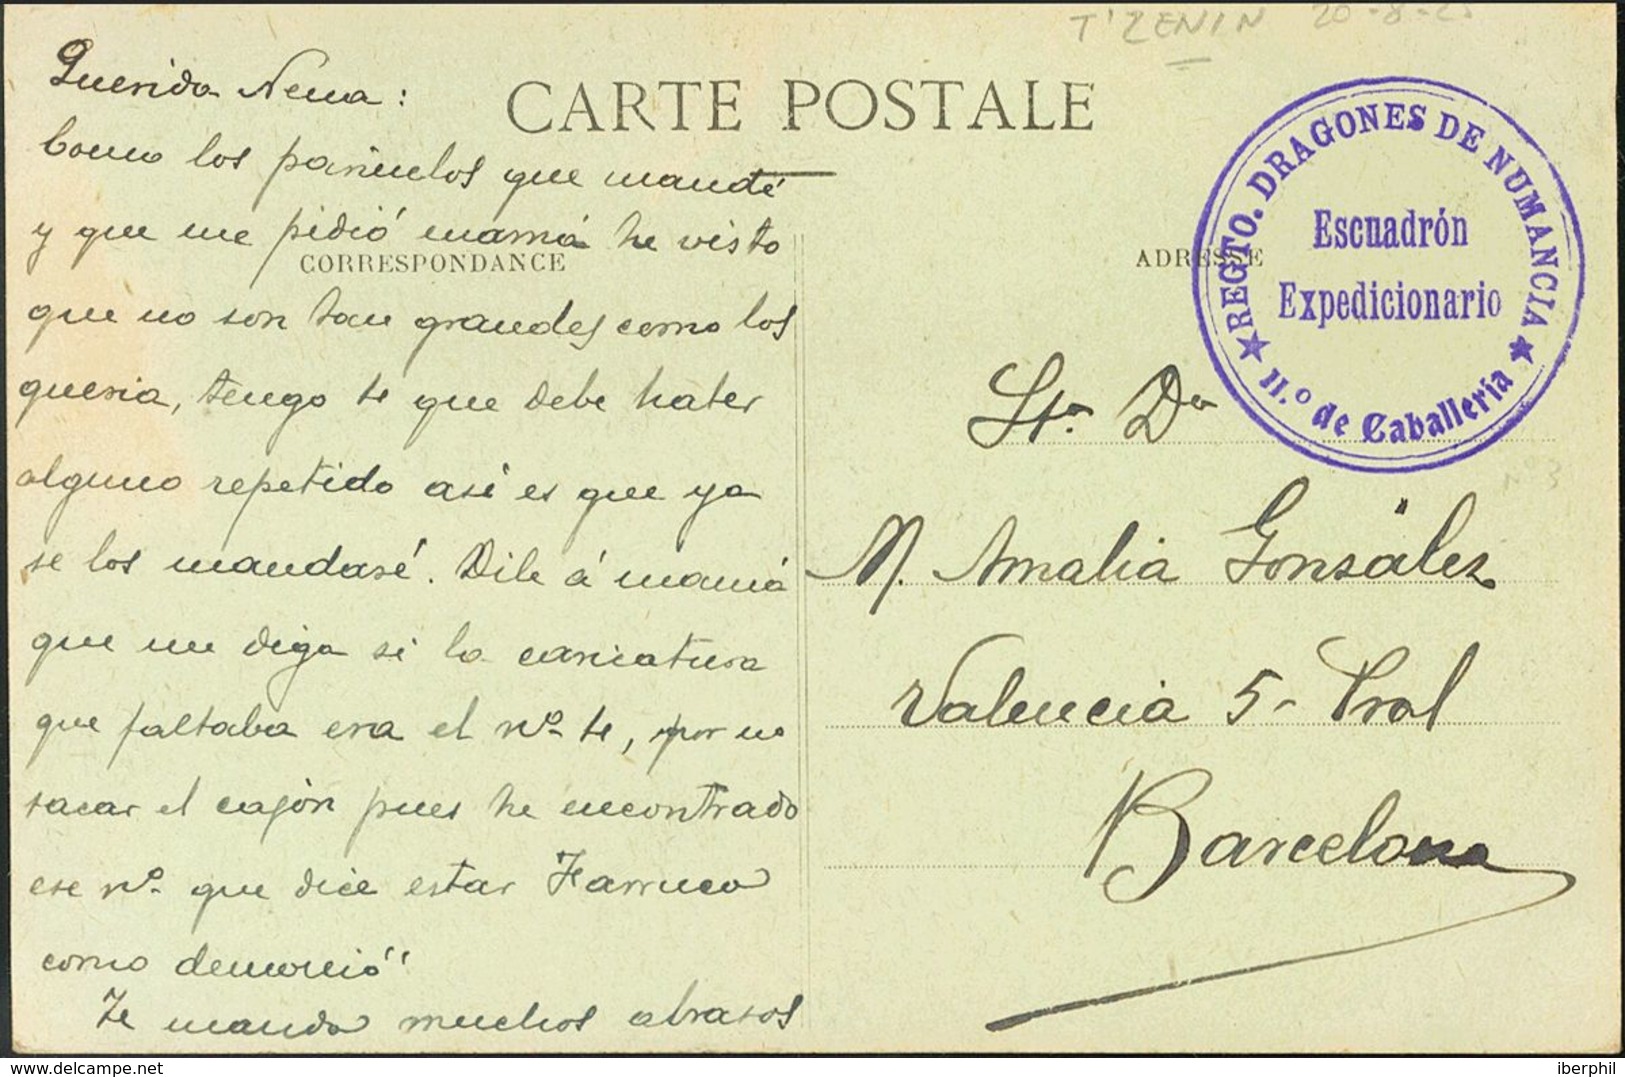 T'ZENIN 20-8-2
CARTE POSTALE
Querida Nena:
Como los pañuelos que mandé
y que me pidió mamá he visto
que no son tan grandes como los
queria, tengo que debe haber
alguno repetido asi es que ya
se los mandaré. Dile á mamá
que me diga si la caricatura
que faltaba era el nº, por no
sacar el cajón pues he encontrado
ese nº que dice estar
como
Te manda muchos abrazos
CORRESPONDANCE
ADRESSE
REGTO. DRAGONES DE NUMANCIA
Escuadrón
Expedicionario
★ 11.º de Caballería ★
Nº3
Sta. Da
M. Amalia González
Valencia 5- Pral
Barcelona
delcampe.net
iberphil